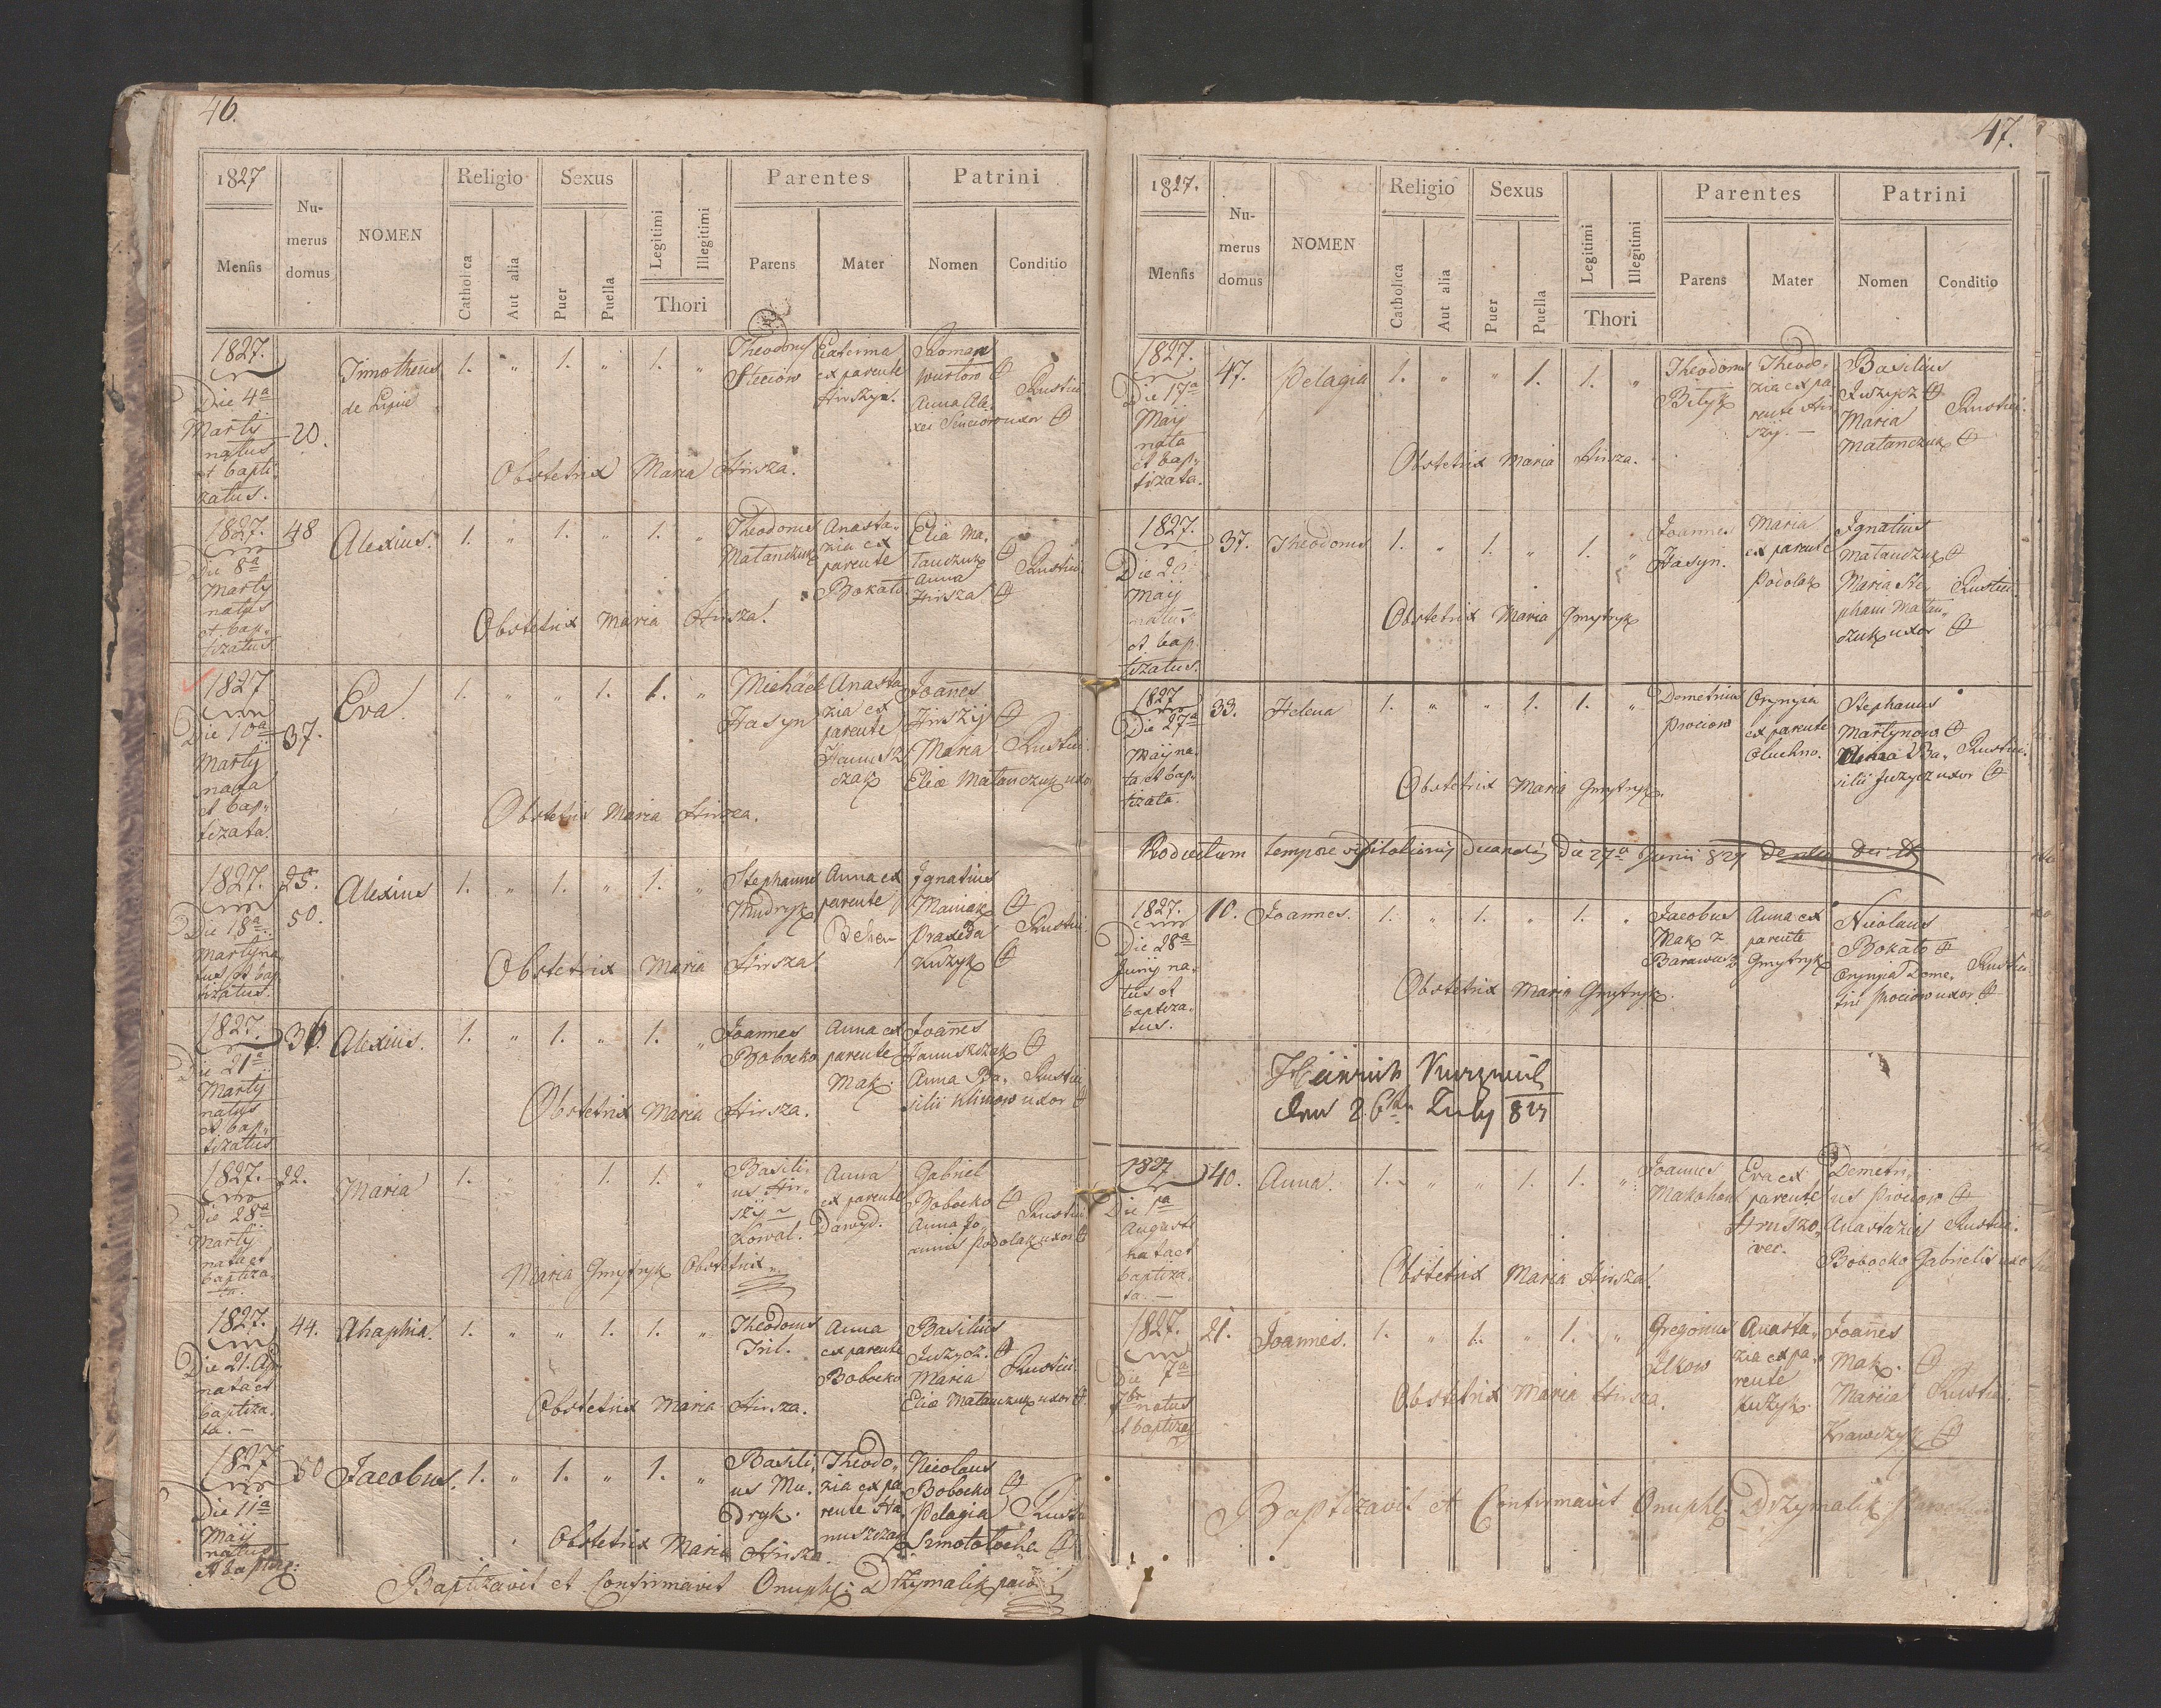 46.
1827
Mensis
Nu-
merus
domus
NOMEN
Religio
Catholica
Aut alia
Sexus
Puer
Puella
Legitimi
Illegitimi
Thori
Parentes
Parens
Mater
Patrini
Nomen
Conditio
1827.
Die 4a
Martij
natus
et bapti
zatus.
20.
Timotheus
de Lipie
1. " 1. " 1. "
Theodorus
Steciow
Ecaterina
ex parente
Hirszyj.
Roman
Wurtow
Anna Ale,
xei Senciow uxor
Rustici
Obstetrix Maria Hirsza.
1827.
Die 8a
Martij
natus
et bap,
tizatus
48
Alexius.
1. " 1. " 1. "
Theodorus
Matanczuk
Anasta,
zia ex
parente
Bokato
Elia Ma,
tanczuk
Anna
Hirsza
Rustici
Obstetrix Maria Hirsza.
1827
Die 10a
Martij
nata
et bap,
tizata.
37.
Eva
1. " " 1. 1. "
Michael
Hasyn
Anasta
zia ex
parente
Hanusz
czak
Joannes
Hirszij
Maria
Eliæ Matanczuk uxor
Rustici.
Obstetrix Maria Hirsza.
1827.
Die 18a
Martij na,
tus et bap
tizatus.
25.
50.
Alexius
1. " 1. " 1. "
Stephanus
Mudryk
Anna ex
parente
Beher
Ignatius
Maniak
Praxeda
Kuzyk
Rustici
Obstetrix Maria Hirsza.
1827.
Die 21a
Martij
natus
et bap,
tizatus
36.
Alexius.
1. " 1. " 1. "
Joannes
Bobocko
Anna ex
parente
Mak.
Joannes
Hanuszczak
Anna Ba,
silii Klimow uxor
Rustici
Obstetrix Maria Hirsza.
1827.
Die 28a
Martij
nata et
baptiza,
ta.
22.
Maria
1. " " 1. 1. "
Basili,
us Hir,
szij
Kowal.
Anna
ex parente
Dawyd.
Gabriel
Bobocko
Anna Jo,
annis Podolak uxor
Rustici
Maria Gmytryk Obstetrix.
1827.
Die 21. Apr
nata et
baptiza,
ta. —
44.
Ahaphia.
1. " " 1. 1. "
Theodorus
Tril.
Anna
ex parente
Bobocko
Basilius
Juzycz.
Maria
Eliæ Matanczuk uxor
Rustici.
Obstetrix Maria Hirsza.
1827
Die 11a
Maij
natus
et baptiz:
50
Jacobus.
1. " 1. " 1. "
Basili,
us Mu,
dryk.
Theodo,
zia ex pa
rente Ha,
nuszczak
Nicolaus
Bobocko
Pelagia
Szmotolocha
Rusti
Obstetrix Maria Hirsza.
Baptizavit et Confirmavit Onuph: Drzymalik paro
47.
1827.
Mensis
Nu-
merus
domus
NOMEN
Religio
Catholica
Aut alia
Sexus
Puer
Puella
Legitimi
Illegitimi
Thori
Parentes
Parens
Mater
Patrini
Nomen
Conditio
1827.
Die 17a
Maij
nata
et bap,
tizata.
47.
Pelagia
1. " " 1. 1. "
Theodorus
Bityk
Theodo,
zia ex pa
rente Hir
szij. —
Basilius
Juzycz
Maria
Matanczuk
Rustici.
Obstetrix Maria Hirsza.
1827.
Die 20
Maij
natus
et bap
tizatus.
37.
Theodorus
1. " 1. " 1. "
Joannes
Hasyn.
Maria
ex parente
Podolak
Ignatius
Matanczuk
Maria Ste,
phani Matan,
czuk uxor
Rustici.
Obstetrix Maria Gmytryk
1827
Die 27a
Maij na,
ta et bap,
tizata.
33.
Helena
1. " " 1. 1. "
Demetrius
Prociow
Orynyia
ex parente
Oluchno.
Stephanus
Martynow
Anna Ba,
silii Juzycz uxor
Rustici.
Obstetrix Maria Gmytryk.
Productum tempore visitationis Decanalis Die 27a Junii 827
1827.
Die 28a
Junij na,
tus et
baptiza,
tus.
10.
Joannes.
1. " 1. " 1. "
Jacobus
Mak
Barawusz
Anna ex
parente
Gmytryk
Nicolaus
Bokato
Orynyia Deme,
trii Prociow uxor.
Rustici
Obstetrix Maria Gmytryk.
Heinrich
den 26ten July 827
1827
Die 1a
Augusti
nata et
baptiza,
ta. —
40.
Anna.
1. " " 1. 1. "
Joannes
Makohon
Eva ex
parente
Hruszo,
wec.
Demetri,
us Prociow
Anastazia
Bobocko Gabrielis uxo
Rustici.
Obstetrix Maria Hirsza.
1827.
Die 7a
7br
natus
et baptizat
21.
Joannes.
1. " 1. " 1. "
Gregorius
Ilkow
Anasta,
zia ex pa,
rente
Kuzyk.
Joannes
Mak.
Maria
Krawczyk
Rustici.
Obstetrix Maria Hirsza.
Baptizavit et Confirmavit Onuph: Drzymalik